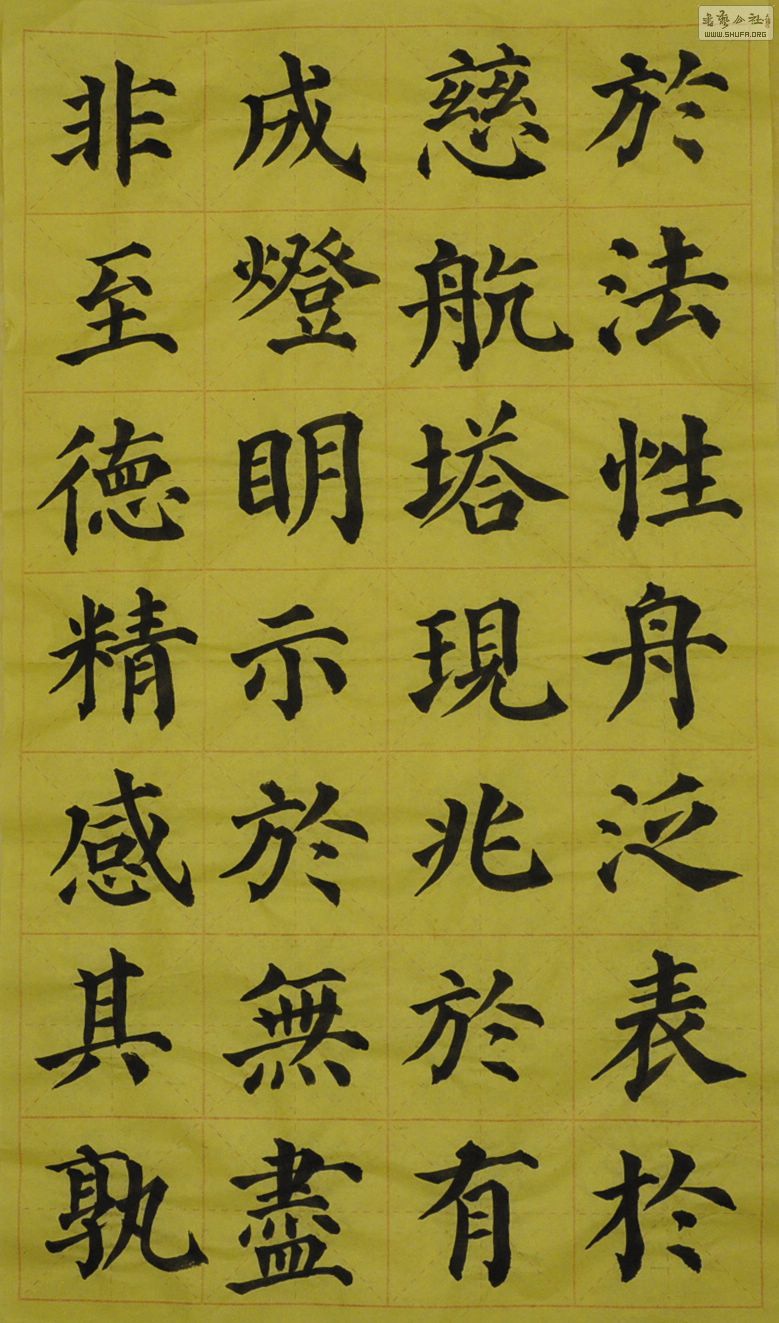 於法性舟泛表扵
慈航塔現兆於有
成燈眀示於無盡
非至徳精感其孰
書藝公社
WWW.SHUFA.ORG